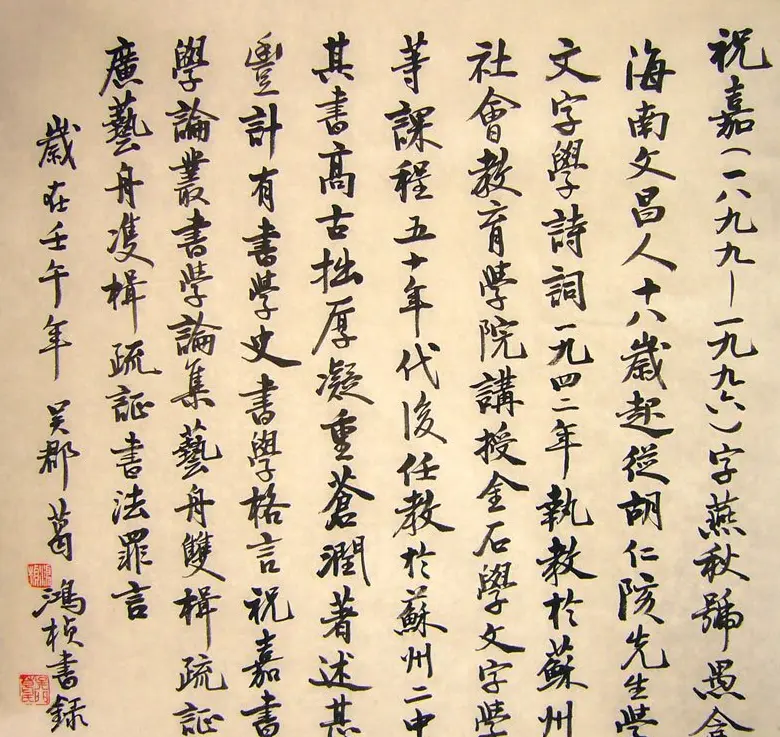 祝嘉（一八九九－一九九六）字燕秋號愚盦
海南文昌人十八歲起從胡仁陔先生學
文字學詩詞一九四二年執教於蘇州
社會教育學院講授金石學文字學
等課程五十年代後任教於蘇州二中
其書高古拙厚凝重蒼潤著述甚
豐計有書學史書學格言祝嘉書
學論叢書學論集藝舟雙楫疏證
廣藝舟雙楫疏証書法罪言
歲在壬午年 吴郡葛鴻楨書録